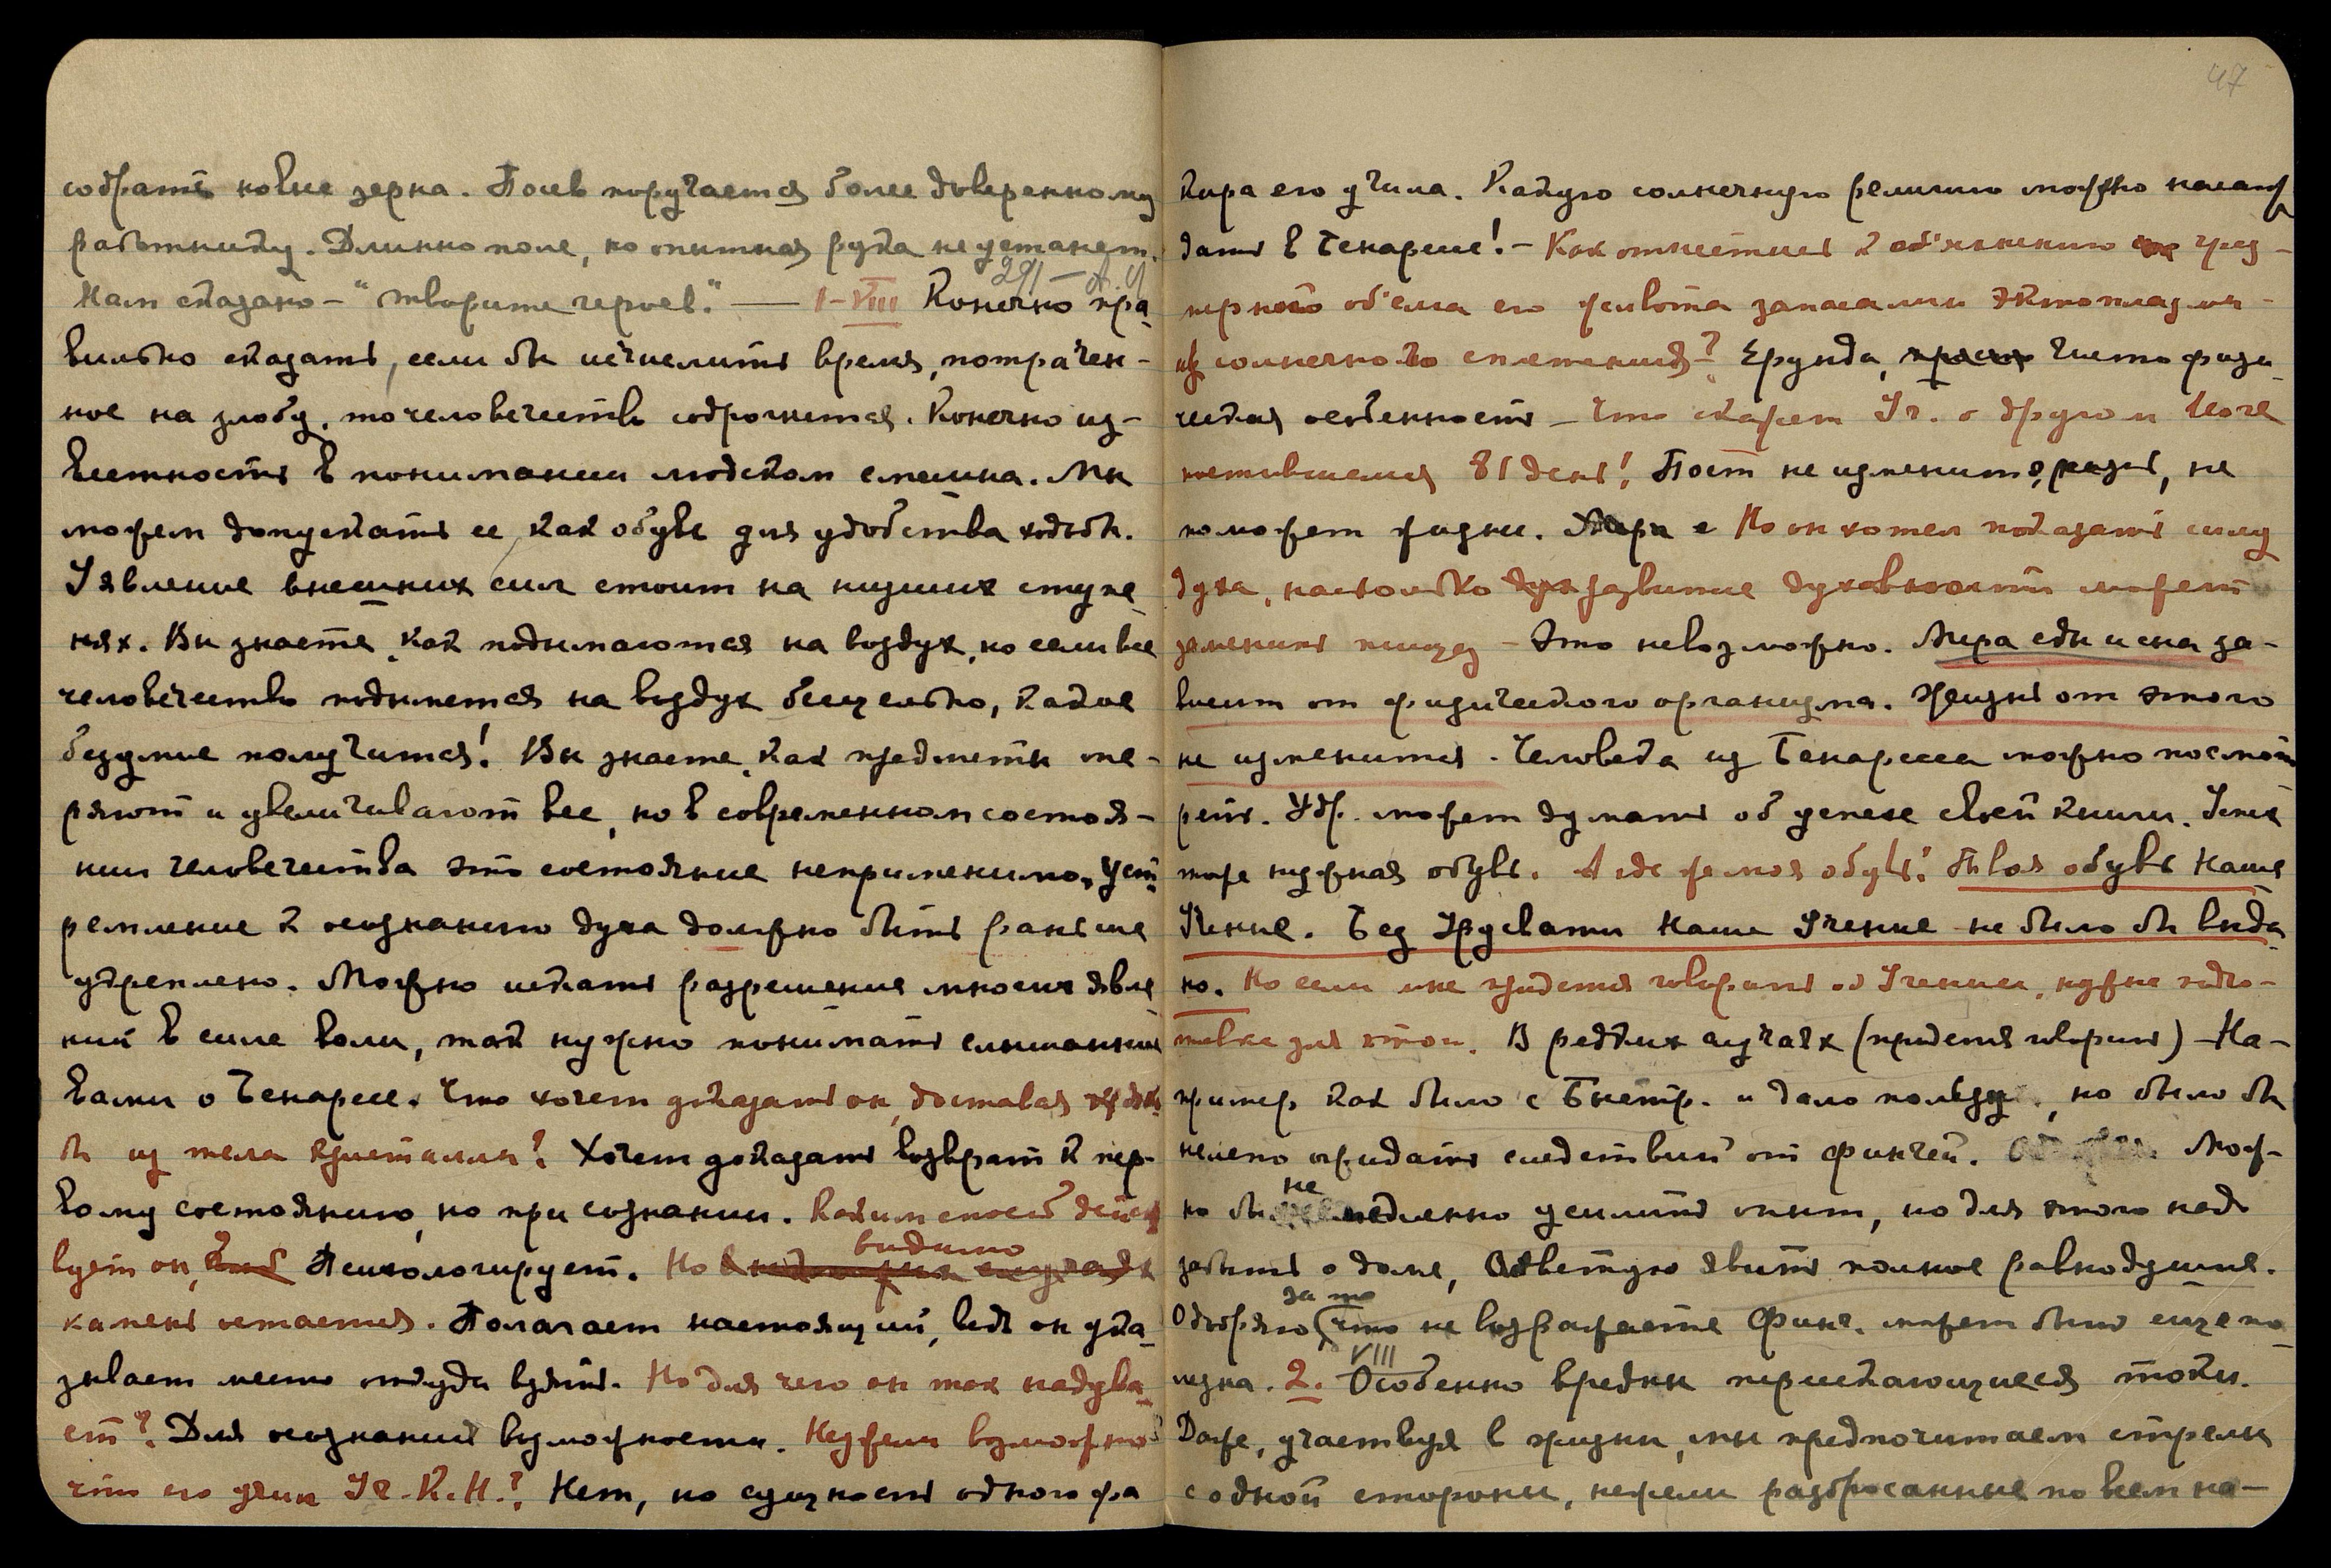 собрать новые зерна. Посев поручается более доверенному
работнику. Длинно поле, но опытная рука не устанет.
Нам сказано – "творите героев." — 1-VIII Конечно пра-
вильно сказать, если бы исчислить время, потрачен-
ное на злобу, то человечество содрогнется. Конечно из-
вестность в понимании людском смешна. Мы
можем допускать ее, как обувь для удобства ходьбы.
Явление внешних сил стоит на низших ступе-
нях. Вы знаете, как подымаются на воздух, но если все
человечество подымется на воздух бесцельно, какое
безумие получится! Вы знаете, как предметы те-
ряют и увеличивают вес, но в современном состоя-
нии человечества это состояние неприменимо, уст-
ремление к осознанию духа должно быть раньше
укреплено. Можно искать разрешения многих явле
ний в силе воли, так нужно понимать слышанный
вами о Бенаресе. Что хочет доказать он, доставая
бы из тела кристаллы? Хочет доказать возврат к пер-
вому состоянию, но при сознании. Каким способ дейст
вует он? Психологирует. Но видимо
камень остается. Полагает настоящий, ведь он ука-
зывает место откуда взять. Но для чего он так надува-
ет? Для осознания возможности. Неужели возможно
что его учил Уч. К.Н.? Нет, но сущность одного фа
47
кира его учила. Какую солнечную религию можно насаж
дать в Бенаресе! – Как отнестись к об'яснению чрез-
мерного об'ема его живота запасами эктоплазмы
из солнечного сплетения? Ерунда, чисто физи-
ческая особенность – Что скажет Уч. о другом Йоге
постившемся 81 день! Пост не изменит жизнь, не
поможет жизни. Но он хотел показать силу
духа, насколько развитие духовности может
заменить пищу – Это невозможно. Мера еды и сна за-
висит от физического организма. Жизнь от этого
не изменится. Человека из Бенареса можно посмот
реть. Удр. может думать об успехе своей книги. Успех
тоже нужная обувь. А где же моя обувь? Твоя обувь Наше
Учение. Без Урусвати Наше Учение не было бы выда-
но. Но если мне придется говорить об Учении, нужна подго-
товка для этого. В редких случаях (придется говорить) – На-
пример как было с Быстр. и дало пользу, но было бы
нелепо ожидать следствий от Финчей. Мож-
но бы не медленно усилить опыт, но для этого надо
забыть о доме, советую явить полное равнодушие.
Одобряю за то что не возражаете Финч. может быть еще по
лезна. 2. VIII Особенно вредны пересекающиеся токи.
Даже, участвуя в жизни, мы предпочитаем стрелы
с одной стороны, нежели разбросанные по всем на-